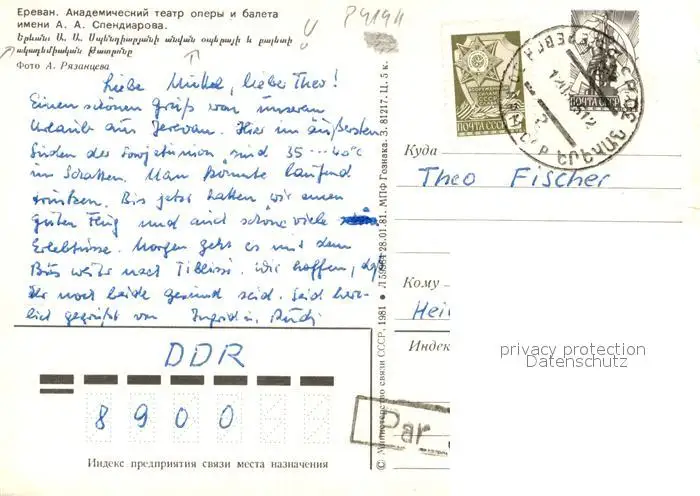 Ереван. Академический театр оперы и балета
имени А. А. Спендиарова.
Երևան: Ա. Ա. Սպենդիարյանի անվան օպերայի և բալետի
ակադեմիական թատրոնը
Фото А. Рязанцева
Liebe Muttel, lieber Theo!
Einen schönen Gruß von unserem
Urlaub aus Jerevan. Hier im äußersten
Süden der Sowjetunion sind 35 --- 40°C
im Schatten. Man könnte laufend
trinken. Bis jetzt hatten wir einen
guten Flug und auch schöne viele
Erlebnisse. Morgen geht es mit dem
Bus weiter nach Tiblissi. Wir hoffen, daß
Ihr noch beide gesund seid. Seid herz-
lich gegrüßt von Ingrid u. Rudi
DDR
8900
Индекс предприятия связи места назначения
© Министерство связи СССР, 1981 ● 28.01.81. МПФ Гознака. З. 81217. Ц. 5 к.
ПОЧТА СССР
ПОЧТА СССР
ԵՐԵՎԱՆ
Куда
Theo Fischer
Кому
Hei
Индек
Par
privacy protection
Datenschutz